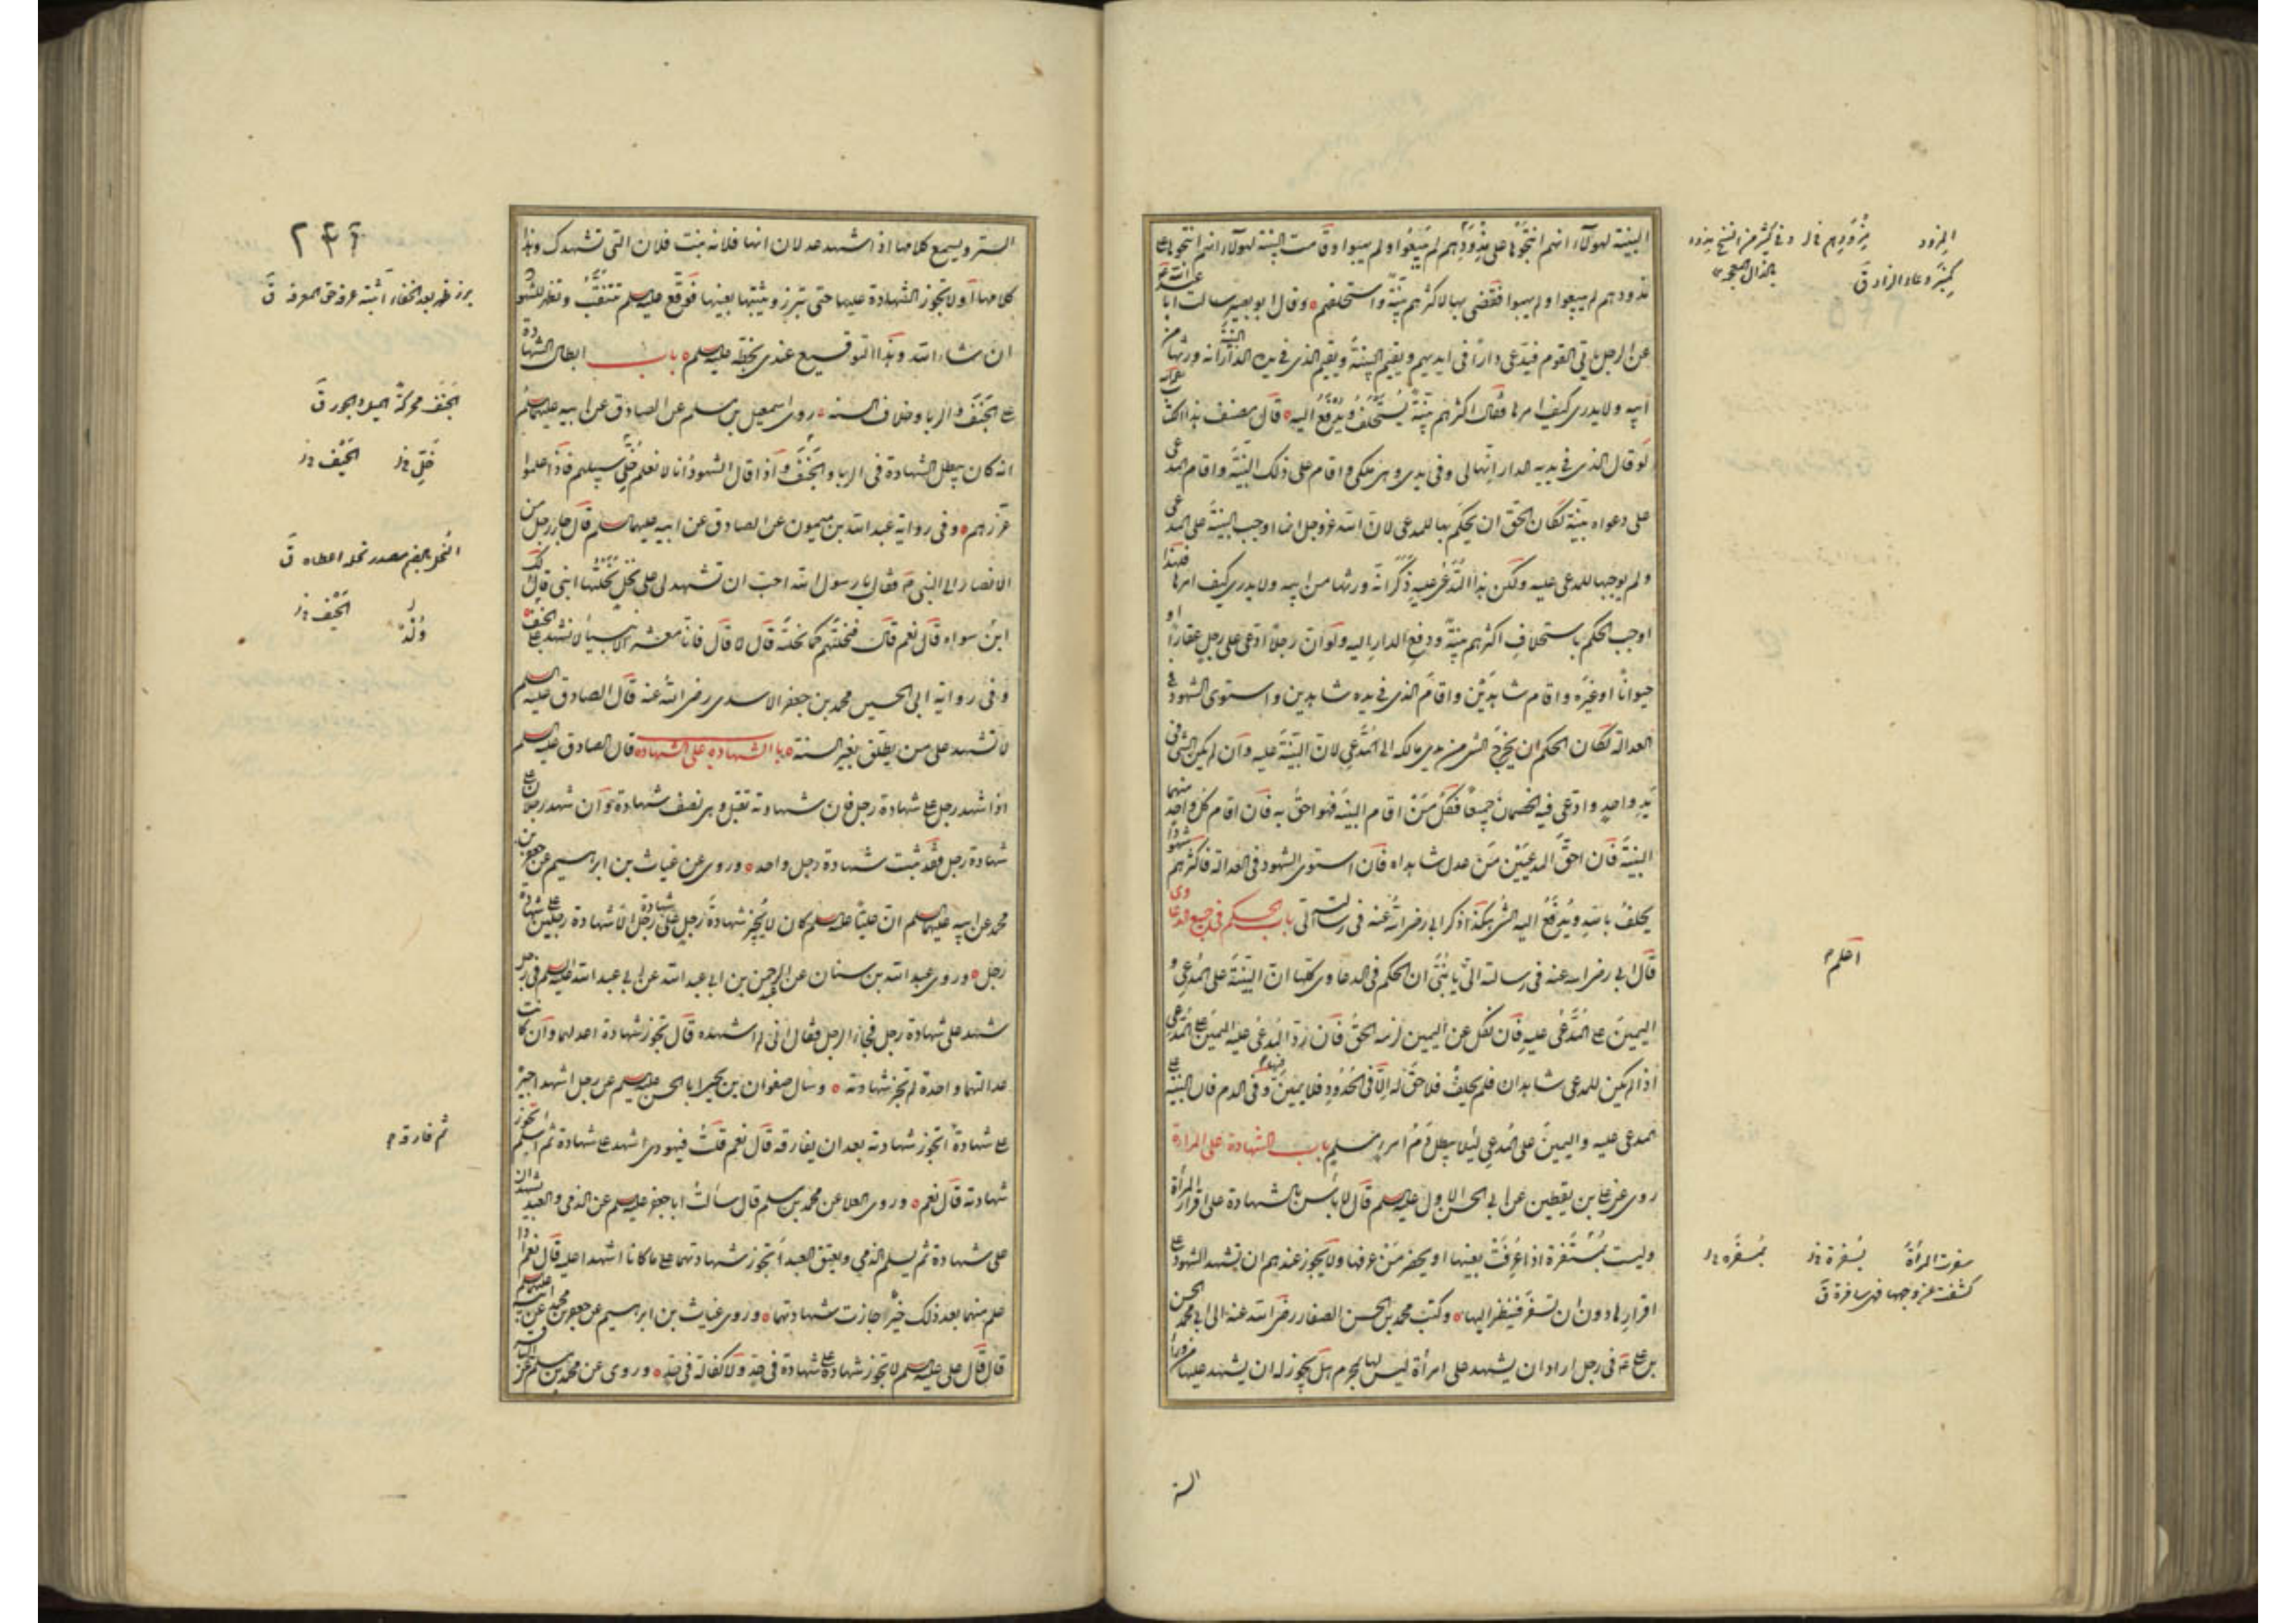 البينة لهولاء انهم انتجوها على مذودهم لم يبيعوا ولم يهبوا وقامت البينة لهولاء انهم انتجوها على
مذودهم لم يبيعوا ولم يهبوا فقضى بها لاكثرهم بينة واستحلفهم وقال ابو بصير سالت ابا عبد الله ع
عن الرجل ياتى القوم فيدعى دارا فى ايديهم ويقيم البينة ويقيم الذى فى يده الدار البينة انه ورثها من
ابيه ولا يدرى كيف امرها فقال اكثرهم بينة يستحلف ويدفع اليه قال مصنف هذا الكتاب
لو قال الذى فى يديه الدار انها لى وفى يدى وهى ملكى واقام على ذلك البينة واقام المدعى
على دعواه بينة لكان الحق ان يحكم بها للمدعى لان الله عز وجل انما اوجب البينة على المدعى
ولم يوجبها للمدعى عليه ولكن هذا المدعى عليه ذكر انه ورثها من ابيه ولا يدرى كيف امرها فلهذا
اوجب الحكم باستحلاف اكثرهم بينة ودفع الدار اليه ولو ان رجلا ادعى على رجل عقارا او
حيوانا او غيره واقام شاهدين واقام الذى فى يده شاهدين واستوى الشهود فى
العدالة لكان الحكم ان يخرج الشى من يدى مالكه الى المدعى لان البينة عليه وان لم يكن الشى فى
يد واحد وادعى فيه الخصمان جميعا فكل من اقام البينة فهو احق به فان اقام كل واحد منهما
البينة فان احق المدعيين من عدل شاهداه فان استوى الشهود فى العدالة فاكثرهم شهودا
يحلف بالله ويدفع اليه الشى هكذا ذكر ابى رضى الله عنه فى رسالته الى باب الحكم فى جميع الدعاوى
قال ابى رضى الله عنه فى رسالته الى يا بنى ان الحكم فى الدعاوى كلها ان البينة على المدعى و
اليمين على المدعى عليه فان نكل عن اليمين لزمه الحق فان رد المدعى عليه اليمين على المدعى
اذا لم يكن للمدعى شاهدان فلم يحلف فلا حق له الا فى الحدود فلا يمين فيها وفى الدم فان البينة على
المدعى عليه واليمين على المدعى لئلا يبطل دم امرء مسلم باب الشهادة على المراة
روى عن على بن يقطين عن ابى الحسن الاول عليه السلم قال لا باس بالشهادة على اقرار المرأة
وليست بمسفرة اذا عرفت بعينها او يحضر من عرفها ولا يجوز عندهم ان تشهد الشهود على
اقرارها دون ان تسفر فينظر اليها وكتب محمد بن الحسن الصفار رضى الله عنه الى ابى محمد الحسن
بن على ع فى رجل اراد ان يشهد على امرأة ليس لها بمحرم هل يجوز له ان يشهد عليها من وراء
الستر
المزود
كمنبر وعاء الزاد ق
مزودهم خ ل وفى كثير من النسخ مذود
بالذال المعجمة
اعلم
سفرت المرأة
كشفت عن وجهها فهى سافرة ق
٢٤٤
الستر ويسمع كلامها اذا شهد عدلان انها فلانه بنت فلان التى تشهدك وهذا
كلامها او لا تجوز الشهادة عليها حتى تبرز ويثبتها بعينها فوقع عليه السلم تتنقب وتظهر للشهود
ان شاء الله وهذا التوقيع عندى بخطه عليه السلم باب ابطال الشهادة
على الجنف والربا وخلاف السنه روى اسمعيل بن مسلم عن الصادق عن ابيه عليهما السلم
انه كان يبطل الشهادة فى الربا والجنف واذا قال الشهود انا لا نعلم خلى سبيلهم فاذا علموا
عزرهم وفى رواية عبد الله بن ميمون عن الصادق عن ابيه عليهما السلم قال جاء رجل من
الانصار الى النبى ص فقال يا رسول الله احب ان تشهد لى على نحل نحلتها ابنى قال لك
ابن سواه قال نعم قال فنحلتهم كما نحلته قال لا قال فانا معشر الانبياء لا نشهد على الجنف
وفى رواية ابى الحسين محمد بن جعفر الاسدى رضى الله عنه قال الصادق عليه السلم
لا تشهد على من يطلق بغير السنة باب الشهادة على الشهادة قال الصادق عليه السلم
اذا شهد رجل على شهادة رجل فان شهادته تقبل وهى نصف شهادة وان شهد رجلان على
شهادة رجل فقد ثبت شهادة رجل واحد وروى عن غياث بن ابراهيم عن جعفر بن
محمد عن ابيه عليهما السلم ان عليا عليه السلم كان لا يجيز شهادة رجل على شهادة رجل الا شهادة رجلين على شهادة
رجل وروى عبد الله بن سنان عن عبد الرحمن بن ابى عبد الله عن ابى عبد الله عليه السلم فى رجل
شهد على شهادة رجل فجاء الرجل فقال انى لم اشهده قال تجوز شهادة اعدلهما وان كانت
عدالتهما واحدة لم تجز شهادته وسال صفوان بن يحيى ابا الحسن عليه السلم عن رجل اشهد اجيره
على شهادة اتجوز شهادته بعد ان يفارقه قال نعم قلت فيهودى اشهد على شهادة ثم اسلم اتجوز
شهادته قال نعم وروى العلا عن محمد بن مسلم قال سألت ابا جعفر عليه السلم عن الذمى والعبد يشهدان
على شهادة ثم يسلم الذمى ويعتق العبد اتجوز شهادتهما على ما كانا اشهدا عليه قال نعم اذا
علم منهما بعد ذلك خير جازت شهادتهما وروى غياث بن ابراهيم عن جعفر بن محمد عن ابيه عليهما السلم
قال قال على عليه السلم لا تجوز شهادة على شهادة فى حد ولا كفالة فى حد وروى عن محمد بن مسلم عن
برز ظهر بعد الخفاء اثبته عرفه حق المعرفة ق
الجنف محركة الميل والجور ق
خلى خ ل
الحيف خ ل
النحل بالضم مصدر نحله اعطاه ق
الحيف خ ل
ثم فارقه